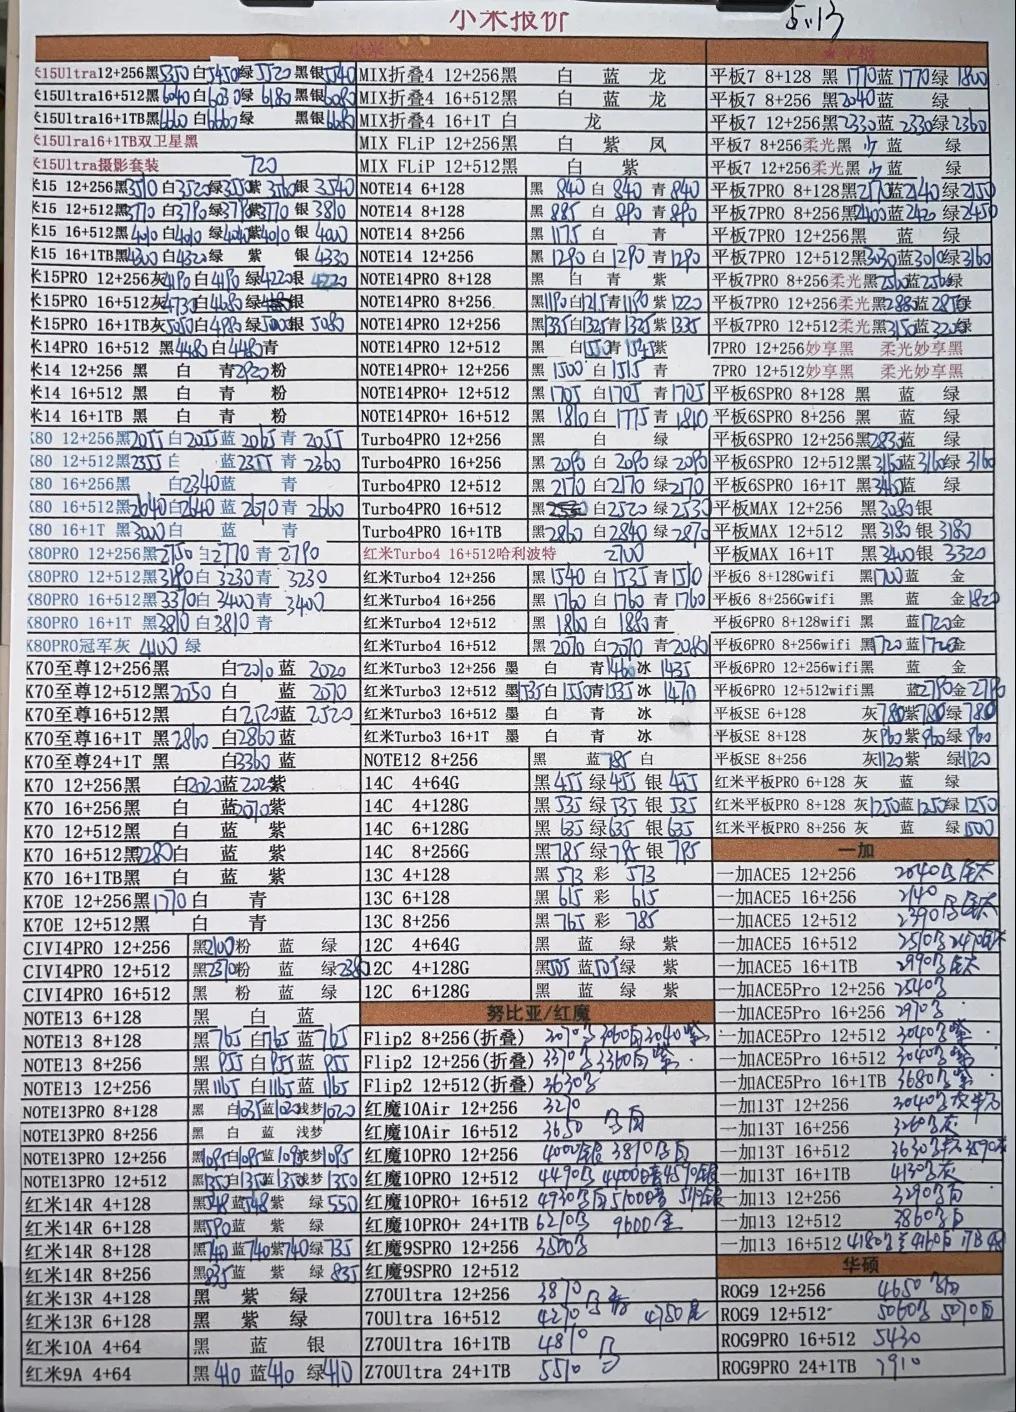 小米报价 5.13
小米
★平板
米15Ultra12+256黑5350 白5450绿5520 黑银5540
米15Ultra16+512黑6040白6030绿6180 黑银6080
米15Ultra16+1TB黑6660白6660绿 黑银6680
米15Ultra16+1TB双卫星黑
米15Ultra摄影套装 720
米15 12+256黑3510白3520绿3550紫3560银3540
米15 12+512黑3770白3790绿3790紫3770 银3810
米15 16+512黑4010白4010 绿4040紫4010银4000
米15 16+1TB黑4300白4320绿 紫 银4330
米15PRO 12+256灰4190白4190绿4220银4220
米15PRO 16+512灰4730白4680绿 银
米15PRO 16+1TB灰5050白4990绿5000银5080
米14PRO 16+512 黑4480白4480青
米14 12+256 黑 白 青2920粉
米14 16+512 黑 白 青 粉
米14 16+1TB 黑 白 青 粉
K80 12+256黑2055白2055蓝2065青2055
K80 12+512黑2355白 蓝2355青2360
K80 16+256黑 白2340蓝 青
K80 16+512黑2640白2640蓝2670青2660
K80 16+1T 黑3000白 蓝 青
K80PRO 12+256黑2750白2770青2790
K80PRO 12+512黑3190白3230青3230
K80PRO 16+512黑3370白3400青3400
K80PRO 16+1T 黑3810白3810青
K80PRO冠军灰 4400 绿
K70至尊12+256黑 白2010蓝2020
K70至尊12+512黑2050 白 蓝2070
K70至尊16+512黑 白2520蓝2520
K70至尊16+1T 黑2860 白2860蓝
K70至尊24+1T 黑 白3360蓝
K70 12+256黑 白2020蓝2025紫
K70 16+256黑 白 蓝2070紫
K70 12+512黑 白 蓝 紫
K70 16+512黑2280白 蓝 紫
K70 16+1TB黑 白 蓝 紫
K70E 12+256黑1770白 青
K70E 12+512黑 白 青
CIVI4PRO 12+256 黑2100粉 蓝 绿
CIVI4PRO 12+512 黑2370粉 蓝 绿
CIVI4PRO 16+512 黑 粉 蓝 绿
NOTE13 6+128 黑 白 蓝
NOTE13 8+128 黑765白765蓝765
NOTE13 8+256 黑955白955蓝955
NOTE13 12+256 黑1165白1165蓝1165
NOTE13PRO 8+128 黑 白1035蓝1020浅梦1020
NOTE13PRO 8+256 黑 白 蓝 浅梦
NOTE13PRO 12+256 黑1095白1095蓝1095浅梦1095
NOTE13PRO 12+512 黑1350白1350蓝1350浅梦1350
红米14R 4+128 黑548蓝548紫 绿550
红米14R 6+128 黑590蓝 紫 绿
红米14R 8+128 黑740蓝740紫740绿735
红米14R 8+256 黑835蓝 紫 绿835
红米13R 4+128 黑 紫 绿
红米13R 6+128 黑 紫 绿
红米10A 4+64 黑 蓝 银
红米9A 4+64 黑410蓝410绿410
MIX折叠4 12+256黑 白 蓝 龙
MIX折叠4 16+512黑 白 蓝 龙
MIX折叠4 16+1T 白 龙
MIX FLiP 12+256黑 白 紫 凤
MIX FLiP 12+512黑 白 紫
NOTE14 6+128 黑840白840青840
NOTE14 8+128 黑885白890青890
NOTE14 8+256 黑1175白 青
NOTE14 12+256 黑1290白1290青1290
NOTE14PRO 8+128 黑 白 青 紫
NOTE14PRO 8+256 黑1190白1215青1190紫1220
NOTE14PRO 12+256 黑1335白1325青1325紫1335
NOTE14PRO 12+512 黑 白1550青1545紫
NOTE14PRO+ 12+256 黑1500白1515青
NOTE14PRO+ 12+512 黑1705白1705青1705
NOTE14PRO+ 16+512 黑1810白1775青1810
Turbo4PRO 12+256 黑 白 绿
Turbo4PRO 16+256 黑2090白2090绿2090
Turbo4PRO 12+512 黑2170白2170绿2170
Turbo4PRO 16+512 黑 白2520绿2530
Turbo4PRO 16+1TB 黑2860白2840绿2870
红米Turbo4 16+512哈利波特 2700
红米Turbo4 12+256 黑1540白1535青1510
红米Turbo4 16+256 黑1760白1760青1760
红米Turbo4 12+512 黑1860白1880青
红米Turbo4 16+512 黑2070白2070青2080
红米Turbo3 12+256 墨 白 青1460冰1435
红米Turbo3 12+512 墨1535白1550青1535冰1470
红米Turbo3 16+512 墨 白 青 冰
红米Turbo3 16+1T 墨 白 青 冰
NOTE12 8+256 黑 蓝785白
14C 4+64G 黑455绿455银455
14C 4+128G 黑535绿535银535
14C 6+128G 黑635绿635银635
14C 8+256G 黑785绿785银785
13C 4+128 黑573彩573
13C 6+128 黑615彩615
13C 8+256 黑765彩785
12C 4+64G 黑 蓝 绿 紫
12C 4+128G 黑505蓝505绿 紫
12C 6+128G 黑 蓝 绿 紫
努比亚/红魔
Flip2 8+256(折叠) 3070 3060 3040紫
Flip2 12+256(折叠) 3370 3360 紫
Flip2 12+512(折叠) 3630
红魔10Air 12+256 3270
红魔10Air 16+512 3650
红魔10PRO 12+256 4000 3810
红魔10PRO 12+512 4490
红魔10PRO+ 16+512 4930
红魔10PRO+ 24+1TB 6210 9600
红魔9SPRO 12+256 3800
红魔9SPRO 12+512
Z70Ultra 12+256 3870
70Ultra 16+512 4270 4750
Z70Ultra 16+1TB 4870
Z70Ultra 24+1TB 5510
平板7 8+128 黑1770蓝1770绿1800
平板7 8+256 黑2040蓝 绿
平板7 12+256黑2330蓝2330绿2360
平板7 8+256柔光黑 蓝 绿
平板7 12+256柔光黑 蓝 绿
平板7PRO 8+128黑2170蓝2140绿2150
平板7PRO 8+256黑2400蓝2420绿2450
平板7PRO 12+256黑 蓝 绿
平板7PRO 12+512黑3030蓝3010绿3160
平板7PRO 8+256柔光黑2560蓝2560绿
平板7PRO 12+256柔光黑2880蓝2850绿
平板7PRO 12+512柔光黑3150蓝3200绿
7PRO 12+256妙享黑 柔光妙享黑
7PRO 12+512妙享黑 柔光妙享黑
平板6SPRO 8+128 黑 蓝 绿
平板6SPRO 8+256 黑 蓝 绿
平板6SPRO 12+256黑2830蓝 绿
平板6SPRO 12+512黑3160蓝3160绿3160
平板6SPRO 16+1T 黑3460蓝 绿
平板MAX 12+256 黑3080银
平板MAX 12+512 黑3180银3180
平板MAX 16+1T 黑3400银3320
平板6 8+128Gwifi 黑1700蓝 金
平板6 8+256Gwifi 黑 蓝 金1820
平板6PRO 8+128wifi 黑 蓝1720金
平板6PRO 8+256wifi 黑1720蓝1720金
平板6PRO 12+256wifi黑 蓝 金
平板6PRO 12+512wifi黑 蓝2790金2790
平板SE 6+128 灰780紫780绿780
平板SE 8+128 灰960紫960绿960
平板SE 8+256 灰1120紫 绿1120
红米平板PRO 6+128 灰 蓝 绿
红米平板PRO 8+128 灰1250蓝1250绿1250
红米平板PRO 8+256 灰 蓝 绿1500
一加
一加ACE5 12+256 2040
一加ACE5 16+256 2140
一加ACE5 12+512 2390
一加ACE5 16+512 2510 2470
一加ACE5 16+1TB 2990
一加ACE5Pro 12+256 2540
一加ACE5Pro 16+256 2970
一加ACE5Pro 12+512 3040 紫
一加ACE5Pro 16+512 3040 紫
一加ACE5Pro 16+1TB 3680 紫
一加13T 12+256 3040
一加13T 16+256 3260
一加13T 16+512 3630 3590
一加13T 16+1TB 4130
一加13 12+256 3290
一加13 12+512 3860
一加13 16+512 4180 4160
华硕
ROG9 12+256 4650
ROG9 12+512 5060 5070
ROG9PRO 16+512 5430
ROG9PRO 24+1TB 7910